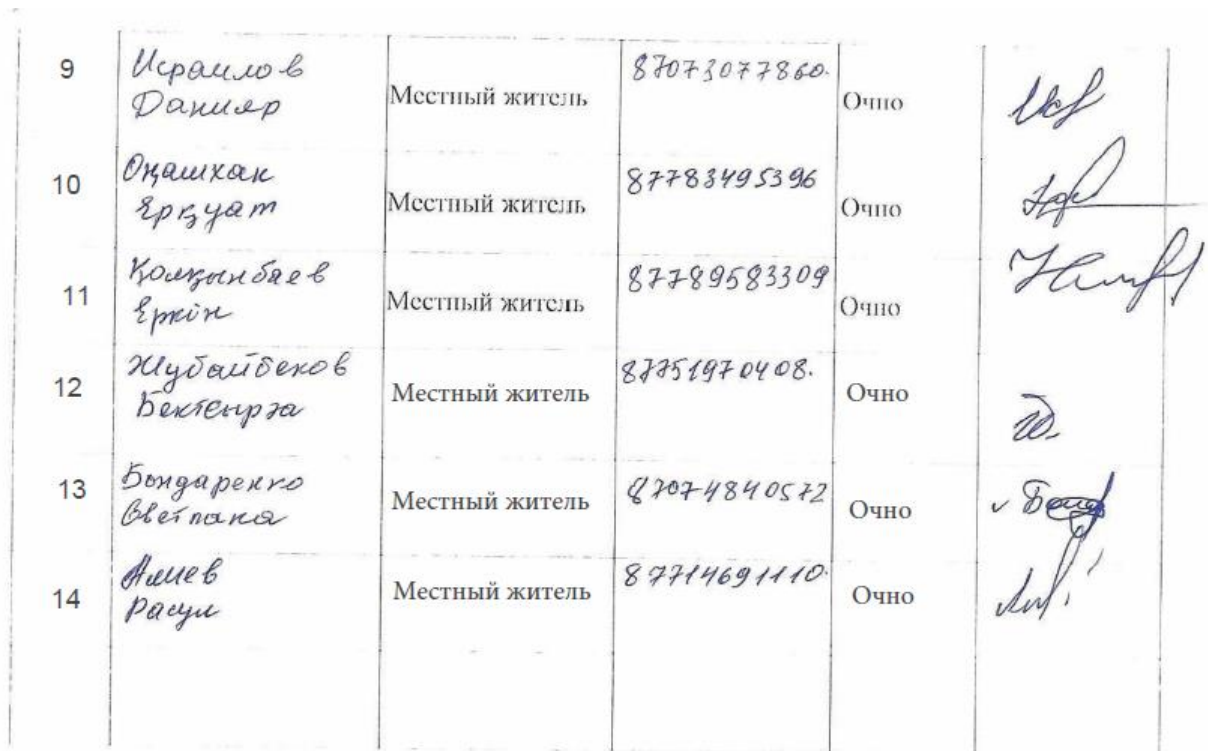 9 Исраилов Данияр Местный житель 87073077860. Очно
10 Оңашхан Ерқуат Местный житель 87783495396 Очно
11 Қолқынбаев Еркін Местный житель 87789583309 Очно
12 Жубайбеков Местный житель 87751970408. Очно
13 Бондаренко Светлана Местный житель 87074840572 Очно
14 Алиев Расул Местный житель 87714691110. Очно